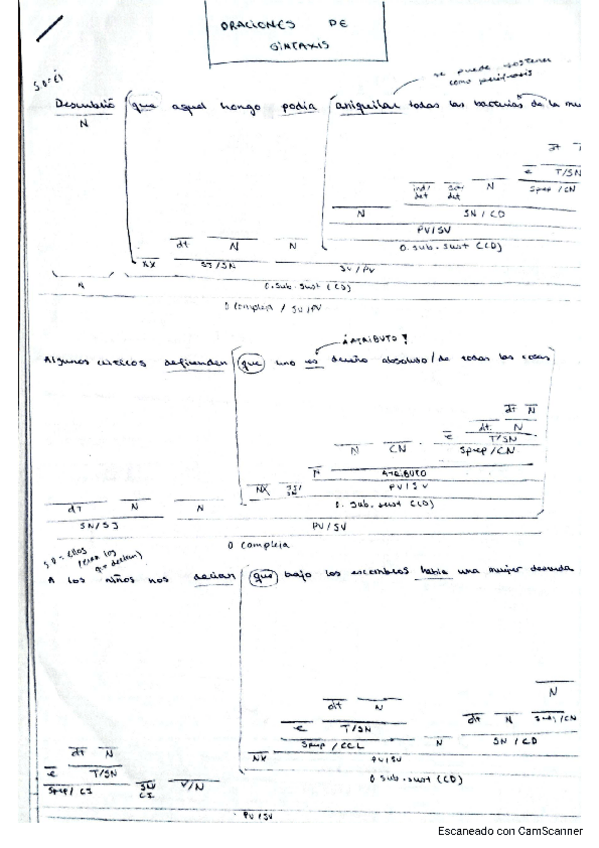 ORACIONES DE
SINTAXIS
se puede sostener
como perífrasis
Descubrió que aquel hongo podía aniquilar todas las bacterias de la mu
N
dt
T/SN
Sprep/CN
N
N
SN/CD
PV/SV
O.sub.sust (CD)
dt N N
NX SJ/SN SV/PV
N O.sub.sust (CD)
O compleja / SV/PV
¡ATRIBUTO!
Algunos críticos defienden que uno es dueño absoluto/de todas las cosas
dt N
dt N
e T/SN
N CN Sprep/CN
N ATRIBUTO
NX SJ/SN PV/SV
dt N N O.sub.sust (CD)
SN/SJ PV/SV
O compleja
SO=ellos
A los niños nos decían que bajo los escombros había una mujer desnuda
N
dt N dt N Sadj/CN
e T/SN
Sprep/CCL N SN/CD
NX PV/SV
dt N
e T/SN
Sprep/CI SN/CI V/N
O sub.sust (CD)
PV/SV
Escaneado con CamScanner